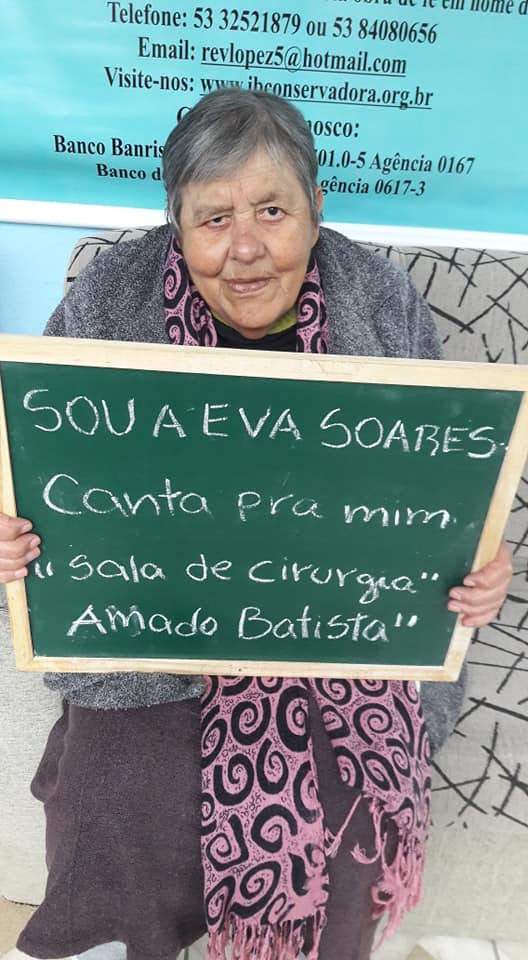 obra de fé em nome d
Telefone: 53 32521879 ou 53 84080656
Email: revlopez5@hotmail.com
Visite-nos: www.ibconservadora.org.br
nosco:
Banco Banris 01.0-5 Agência 0167
Banco do gência 0617-3
SOU A EVA SOARES
Canta pra mim
"Sala de Cirurgia"
Amado Batista"